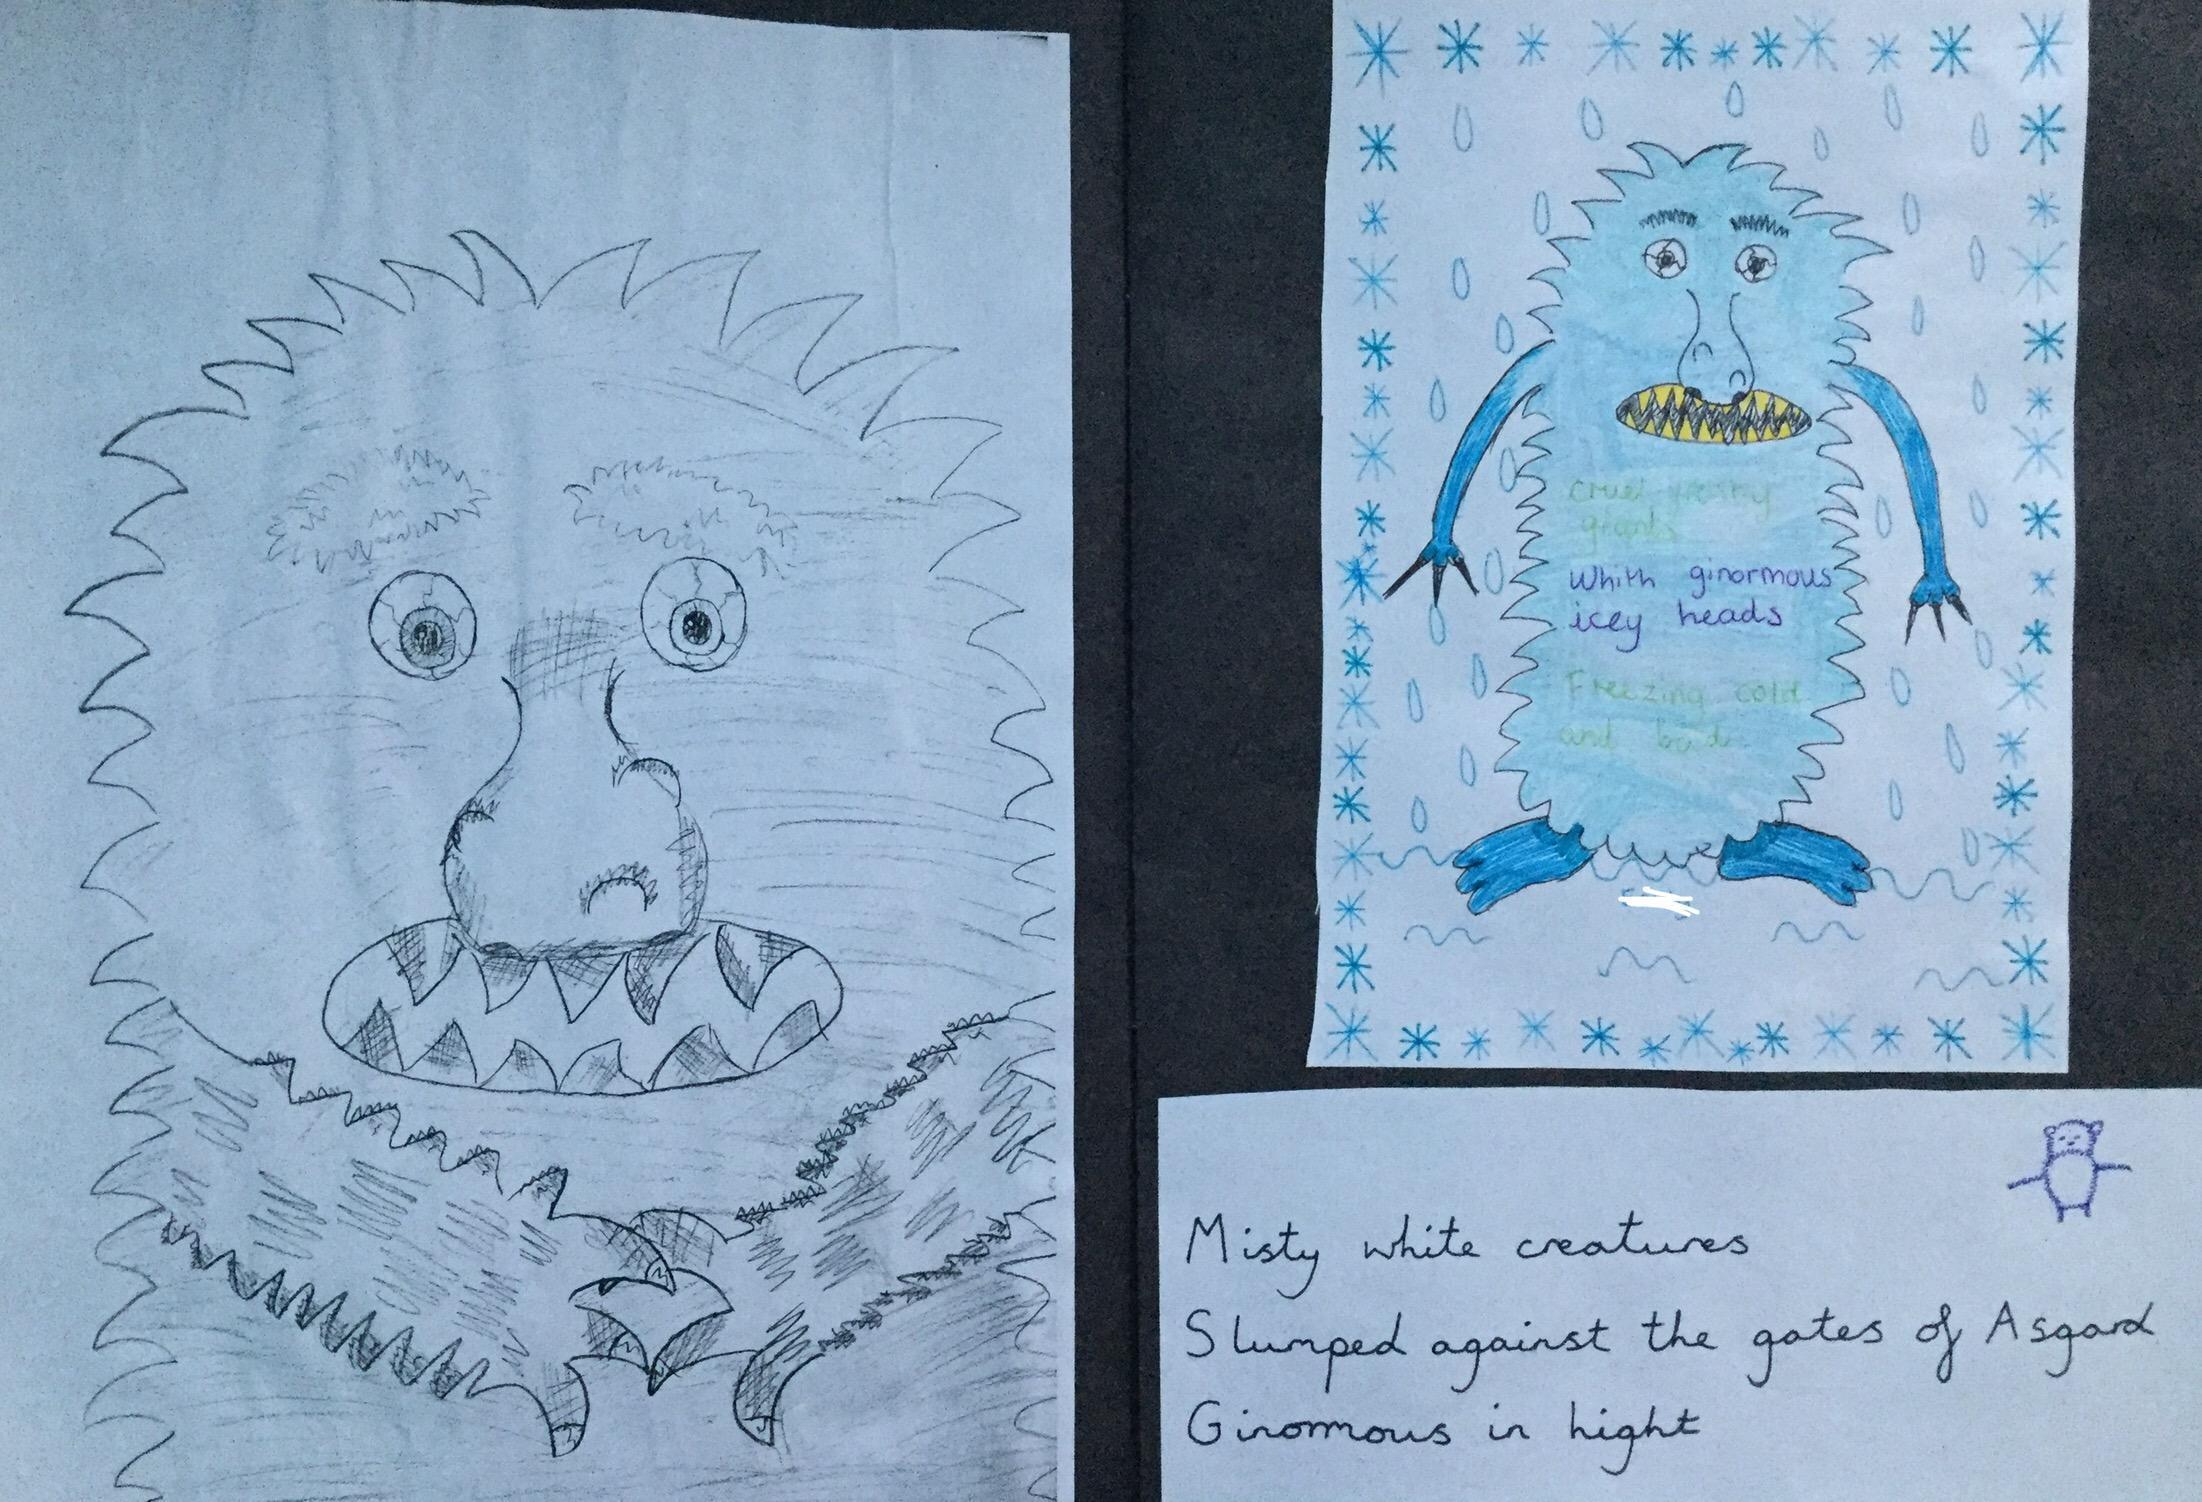 cruel frosty
giants
Whith ginormous
icey heads
Freezing cold
and bad
Misty white creatures
Slumped against the gates of Asgard
Ginormous in hight